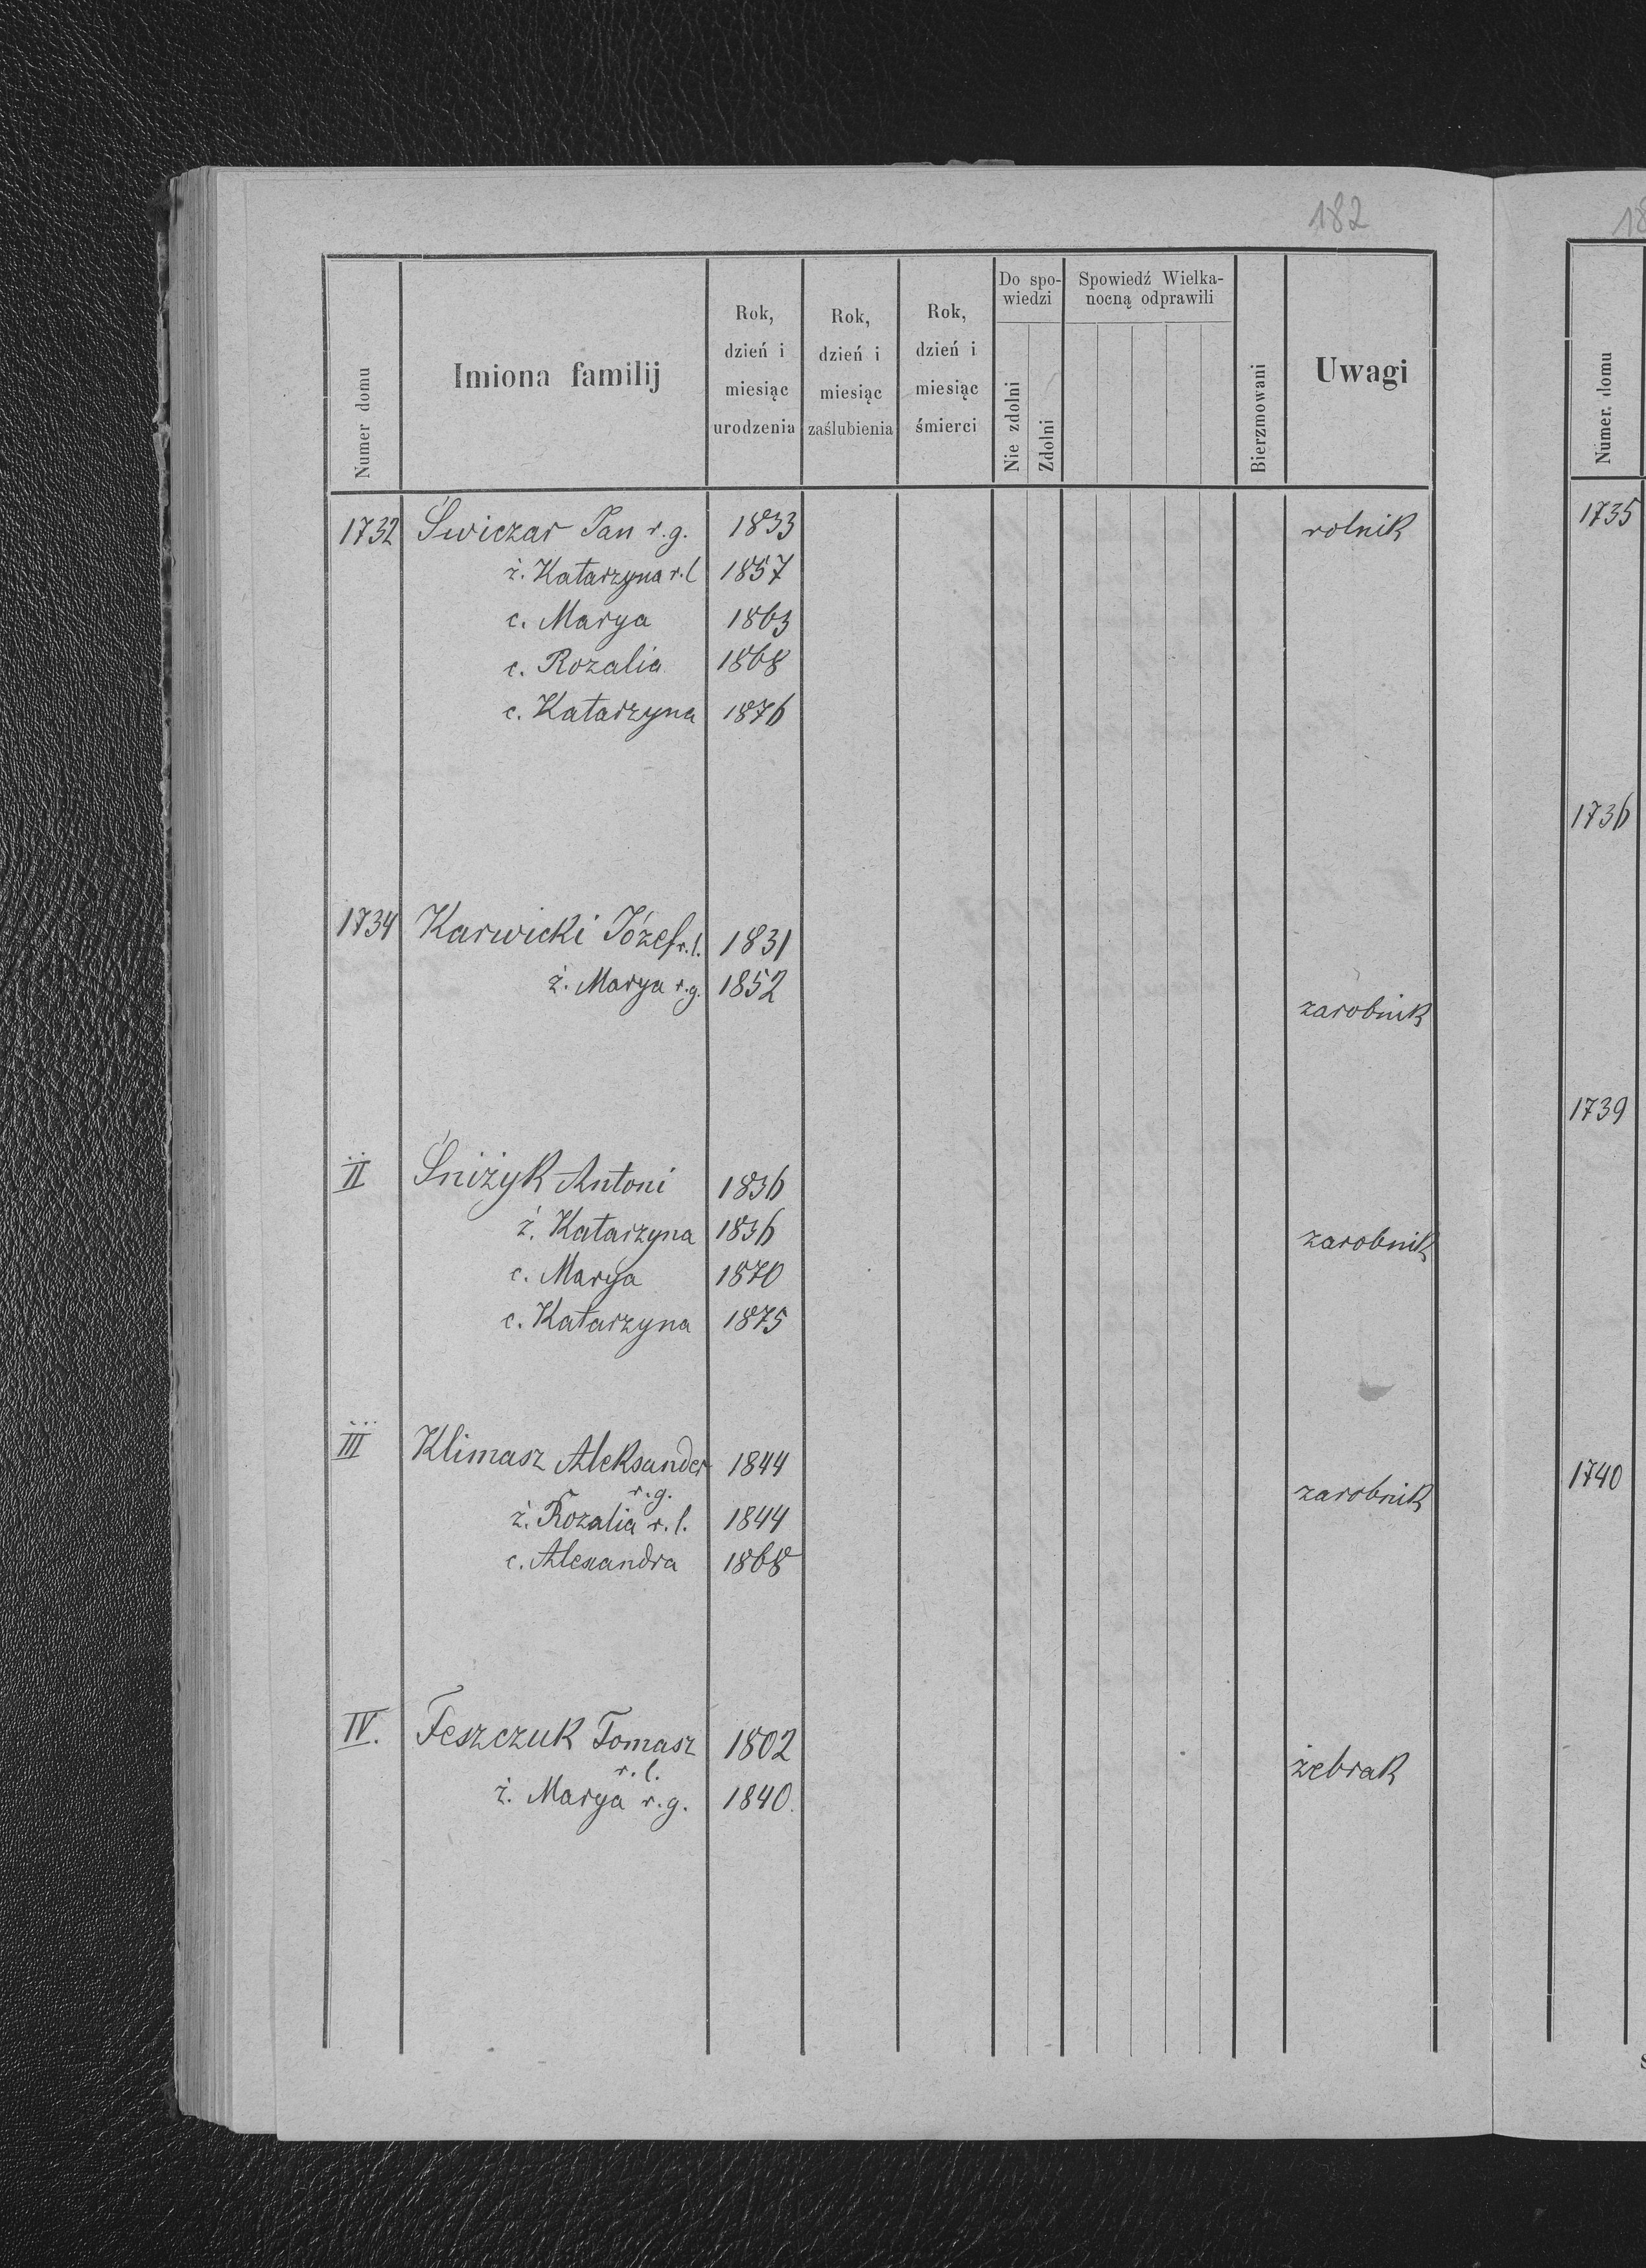 182
Numer domu
Imiona familij
Rok, dzień i miesiąc urodzenia
Rok, dzień i miesiąc zaślubienia
Rok, dzień i miesiąc śmierci
Do spo-
wiedzi
Nie zdolni
Zdolni
Spowiedź Wielka-
nocną odprawili
Bierzmowani
Uwagi
1732 Świczar Jan r.g. 1833 rolnik
ż. Katarzyna r.l 1857
c. Marya 1863
c. Rozalia 1868
c. Katarzyna 1876
1734 Karwicki Józef r.l. 1831
ż. Marya r.g. 1852 zarobnik
II Śniżyk Antoni 1836
ż. Katarzyna 1836 zarobnik
c. Marya 1870
c. Katarzyna 1875
III Klimasz Aleksander 1844
r.g. zarobnik
ż. Rozalia r.l. 1844
c. Alexandra 1868
IV. Feszczuk Tomasz 1802
r.l. żebrak
ż. Marya r.g. 1840.
18
Numer domu
1735
1736
1739
1740